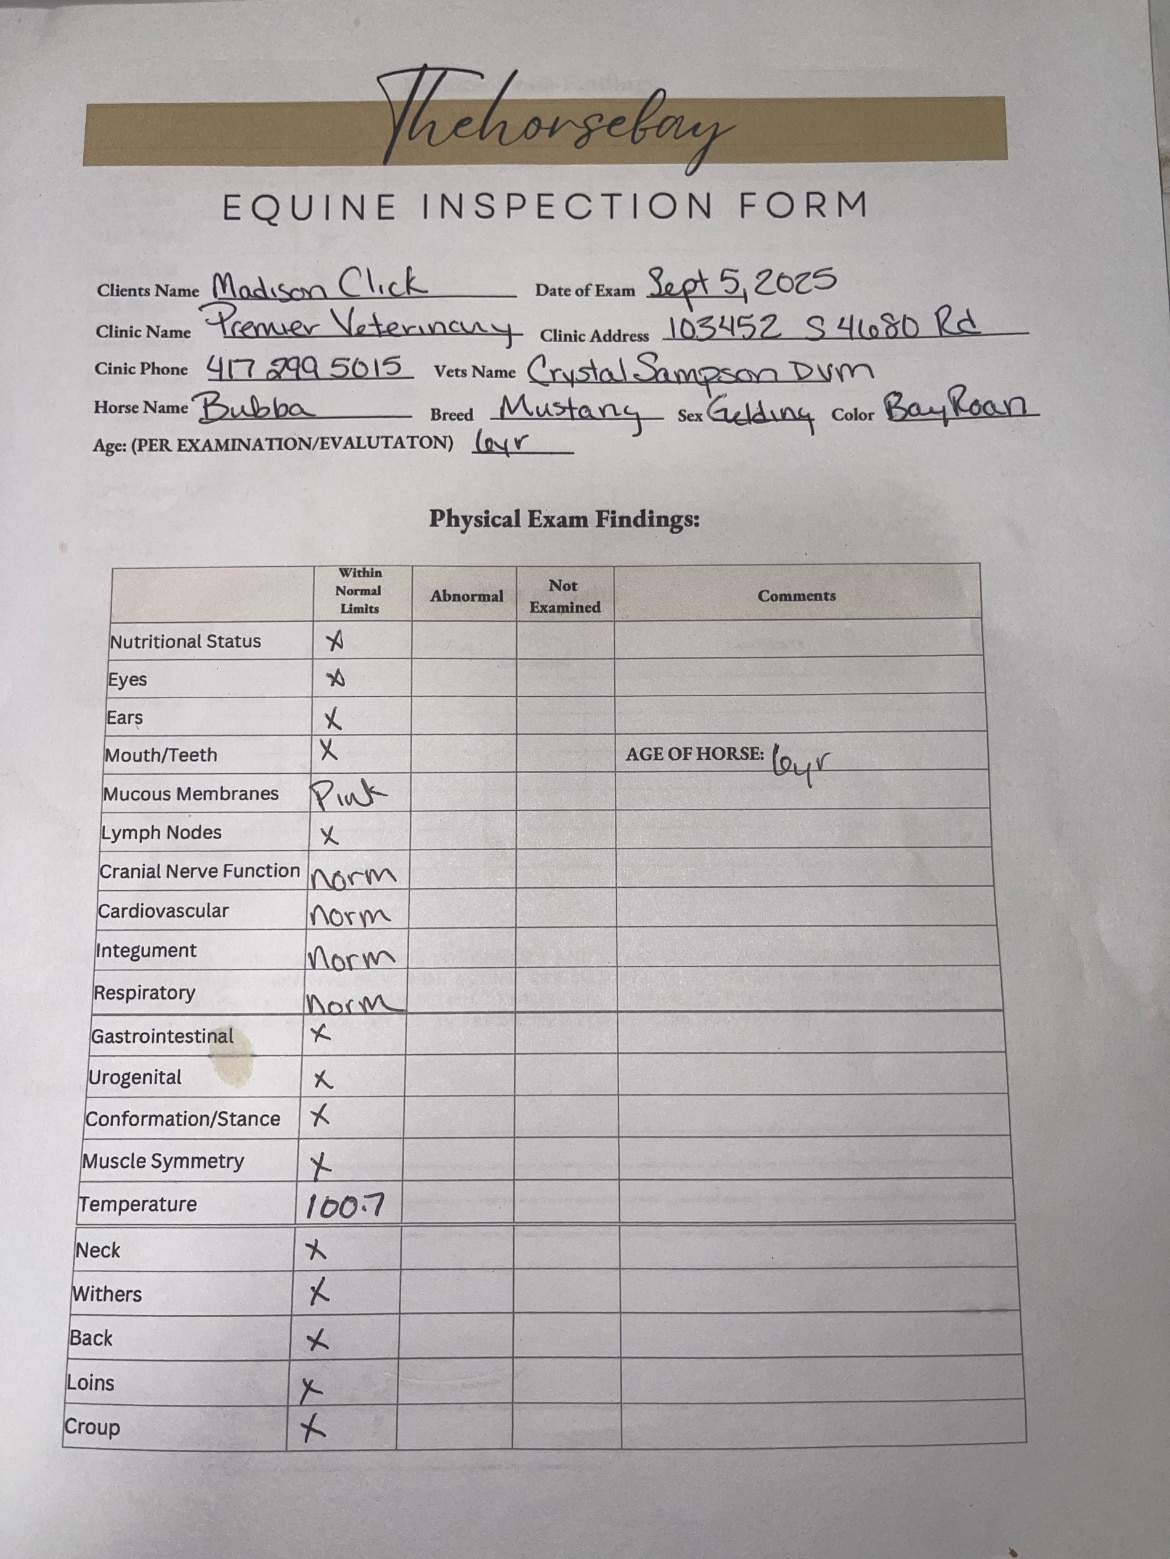 Thehorsebay
EQUINE INSPECTION FORM
Clients Name Madison Click Date of Exam Sept 5, 2025
Clinic Name Premier Veterinary Clinic Address 103452 S 4680 Rd
Cinic Phone 417 299 5015 Vets Name Crystal Sampson DVM
Horse Name Bubba Breed Mustang Sex Gelding Color Bay Roan
Age: (PER EXAMINATION/EVALUTATON) 6yr
Physical Exam Findings:
Within Normal Limits Abnormal Not Examined Comments
Nutritional Status X
Eyes X
Ears X
Mouth/Teeth X AGE OF HORSE: 6yr
Mucous Membranes Pink
Lymph Nodes X
Cranial Nerve Function norm
Cardiovascular norm
Integument norm
Respiratory norm
Gastrointestinal X
Urogenital X
Conformation/Stance X
Muscle Symmetry X
Temperature 100.7
Neck X
Withers X
Back X
Loins X
Croup X